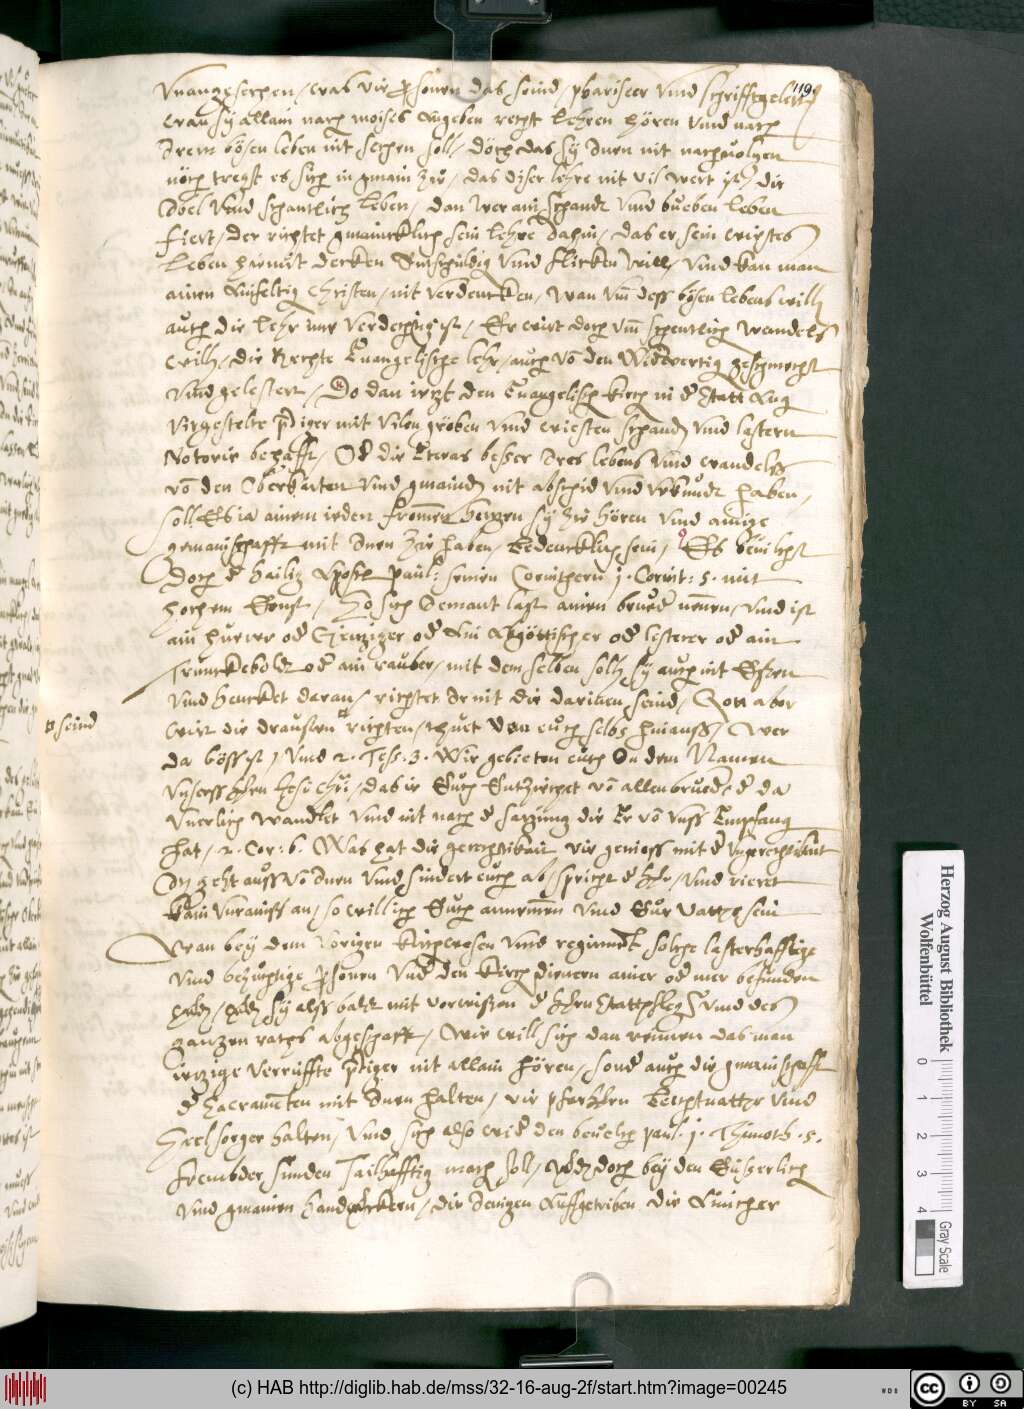 119
Vnangesechen, was vir Personen das seind, phariseer vnd schrifftgelert
wan sy allain nach Moises Angeben recht Lehren hören vnd nach
Irem bösen leben nit sechen soll, doch das sy Inen nit nachuolgen
noch tregt es sich in gmain zue, das diser lehre nit vil wert ist, die
Vbel vnd schantlich leben, dan wer ain schandt vnd bueben leben
fiert, der richtet gmaincklich sein lehre dahin, das er sein wiestes
Leben hiemit decken Entschuldig vnd flicken will, vnd kan man
ainen Ainfeltig christen, nit verdencken, wan vm deß bösen lebens will
auch die lehr Ime verdechtig ist, Er wirt doch vm schentlich Wandels
will, die Rechte Euangelische lehr, auch von den Widerwertig geschmecht
vnd gelestert, So dan ietzt den Euangelisch kirch in der Statt Aug
Virgestelte prediger mit vilen groben vnd wiesten schanden vnd lastern
Notorie behafft, Oder die Etwas besser Ires lebens vnd wandels
von den Oberkaiten vnd gmainden nit abschid vnd vrkundt haben,
soll Es ia ainem ieden frommen hertzen sy zue hören vnd ainige
gemainschafft mit Inen zue haben, bedencklich sein, Es beuilcht
Doch der hailig Apostel Paul: seinen Corinthern 1. Corint: 5. mit
hochem Ernst, So sich Iemant last ainen brueder nennen, vnd ist
ain huerer oder Geitziger oder Ain Abgöttischer oder lesterer oder ain
Trunckeboltz oder ain rauber, mit dem selben solt sy auch nit Essen
vnd hencket daran, richtet Ir nit die darinen seind, Gott aber
wirt die draussen richten, thuet von euch selbs hinauß, Wer
seind
da böß ist, vnd 2. Tess. 3. Wir gebieten euch In dem Namen
Vnsers Herrn Jesu Chri, das ir Euch Entziechet von allen bruedern der da
Vnerlich wandlet vnd nit nach der satzung die Er von vnß Empfang
hat, 2. Cor: 6. Was hat die gerechtikait vir genieß mit der vngerechtikait
Dz geht auß von Inen vnd sindert euch ab, spricht der herr, vnd rieret
kain vnrainiß an, so will ich Euch annemen vnd Eur Vatter sein
Wan bey dem vorigen kirchwesen vnd regiment solche lasterhafftige
vnd bezichtige Personen vnder den kirch dienern ainer oder mer befunden
hat man sy alß bald mit vorwissen der herrn Stattpfleger vnd des
gantzen raths abgeschafft, Wie will sich dan reimen das man
ietzige verrueffte prediger nit allain hören, sonder auch die gmainschafft
der Sacramenten mit Inen halten, vir pfarherrn beichtuatter vnd
Seelsorger halten, vnd sich also wider den beuelch Paul. 1. Thimoth. 5.
frembder sünden tailhafftig mach soll, werden doch bey den Eusserlich
vnd gmainen handwerckern, die Ienigen Auffgetriben die Ainicher
Herzog August Bibliothek
Wolfenbüttel
0 1 2 3 4
Gray Scale
(c) HAB http://diglib.hab.de/mss/32-16-aug-2f/start.htm?image=00245
WDB
cc BY SA